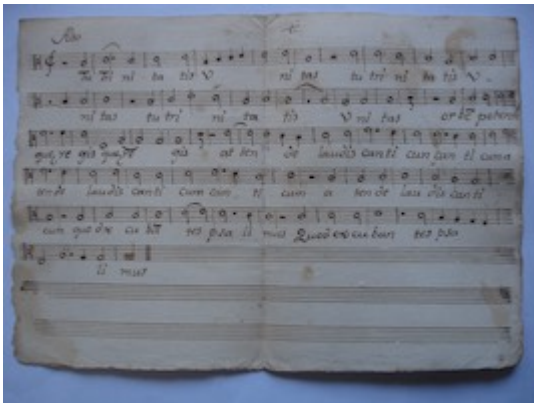 Tu tri ni ta tis V ni tas tu tri ni ta tis V.
ni tas tu tri ni ta tis V ni tas or bē
que re gis que re gis at ten de laudis canti cun can ti cum a
ten de laudis canti cum can ti cum a ten de lau dis canti
cum quod ex cu bā tes psa li mus Quod ex cu ban tes psa
li mus